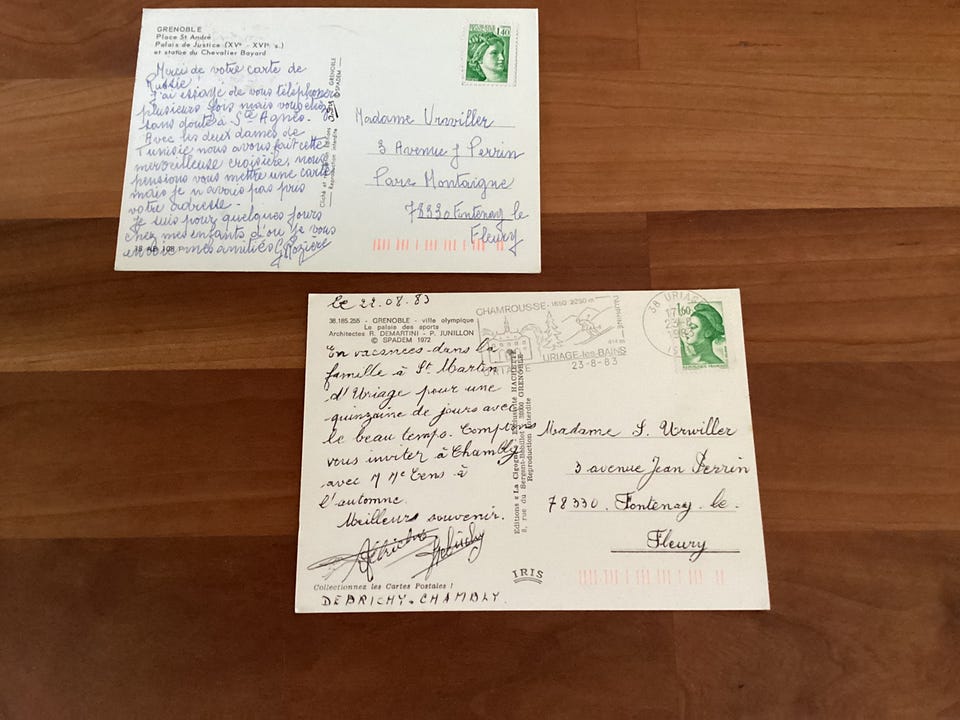 GRENOBLE
Place St André
Palais de Justice (XVe - XVIe s.)
et statue du Chevalier Bayard
Merci de votre carte de
Russie
J'ai essayé de vous téléphoner
plusieurs fois mais vous étiez
sans doute à Ste Agnès.
Avec les deux dames de
Tunisie nous avons fait cette
merveilleuse croisière, nous
pensions vous mettre une carte
mais je n'avais pas pris
votre adresse.
Je suis pour quelques jours
chez mes enfants d'où je vous
envoie mes amitiés
GRENOBLE
SPADEM
Reproduction interdite
REPUBLIQUE FRANÇAISE
1,40
Madame Urwiller
3 Avenue J Perrin
Parc Montaigne
78330 Fontenay le
Fleury
Le 22.08.83
38.185.255 - GRENOBLE - ville olympique
Le palais des sports
Architectes R. DEMARTINI - P. JUNILLON
© SPADEM 1972
En vacances dans la
famille à St Martin
d'Uriage pour une
quinzaine de jours avec
le beau temps. Comptons
vous inviter à Chambly
avec M Me Cens à
l'automne.
Meilleurs souvenir.
Collectionnez les Cartes Postales !
DEBRICHY. CHAMBLY.
Editions « La Cigogne » HACHETTE
8, rue du Sergent-Bobillot, 38000 GRENOBLE
Reproduction interdite
IRIS
CHAMROUSSE. 1650 2250 m
414 m
URIAGE-les-BAINS
23-8-83
38 URIAGE
1,60
REPUBLIQUE FRANÇAISE
Madame S. Urwiller
3 avenue Jean Perrin
78330. Fontenay. le.
Fleury